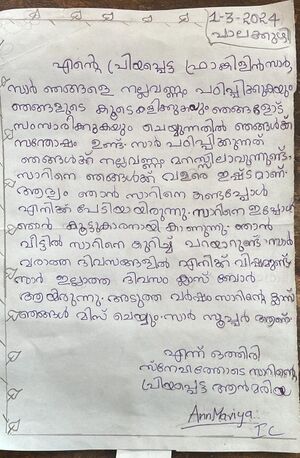 1-3-2024
പാലക്കുഴി
എന്റെ പ്രിയപ്പെട്ട ഫ്രാങ്കിളിൻസർ,
സാർ ഞങ്ങളെ നല്ലവണ്ണം പഠിപ്പിക്കുകയും
ഞങ്ങളുടെ കൂടെകളിക്കുകയും ഞങ്ങളോട്
സംസാരിക്കുകയും ചെയ്യുന്നതിൽ ഞങ്ങൾക്ക്
സന്തോഷം ഉണ്ട്. സാർ പഠിപ്പിക്കുന്നത്
ഞങ്ങൾക്ക് നല്ലവണ്ണം മനസ്സിലാവുന്നുണ്ട്.
സാറിനെ ഞങ്ങൾക്ക് വളരെ ഇഷ്ടമാണ്.
ആദ്യം ഞാൻ സാറിനെ കണ്ടപ്പോൾ
എനിക്ക് പേടിയായിരുന്നു. സാറിനെ ഇപ്പോൾ
ഞാൻ കൂട്ടുകാരനായി കാണുന്നു. ഞാൻ
വീട്ടിൽ സാറിനെ കുറിച്ച് പറയാറുണ്ട് സർ
വരാത്ത ദിവസങ്ങളിൽ എനിക്ക് വിഷമമുണ്ട്
സാർ ഇല്ലാത്ത ദിവസം ക്ലാസ് ബോർ
ആയിരുന്നു. അടുത്ത വർഷം സാറിന്റെ ക്ലാസ്
ഞങ്ങൾ മിസ് ചെയ്യും. സാർ സൂപ്പർ ആണ്.
എന്ന് ഒത്തിരി
സ്നേഹത്തോടെ സാറിന്റെ
പ്രിയപ്പെട്ട ആൻമരിയ
AnnMariya
I C